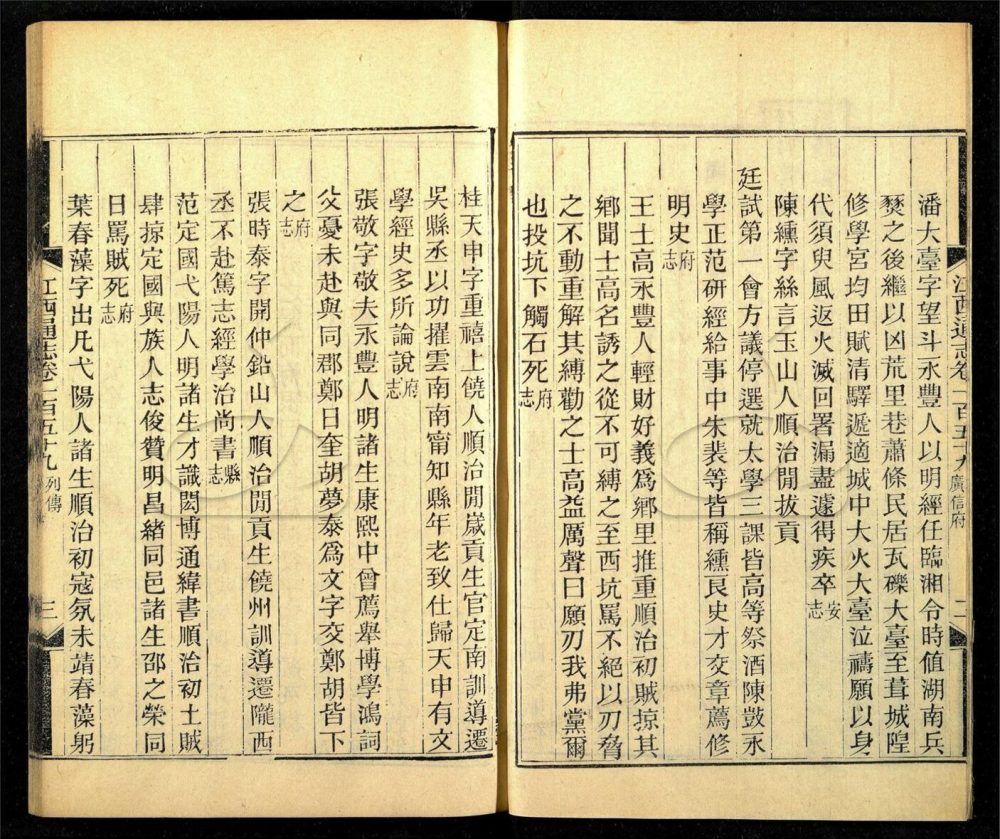 潘大臺字望斗永豐人以明經任臨湘令時值湖南兵
燹之後繼以凶荒里巷蕭條民居瓦礫大臺至葺城隍
修學宮均田賦清驛遞適城中大火大臺泣禱願以身
代須臾風返火滅回署漏盡遽得疾卒安志
陳纁字絲言玉山人順治閒拔貢
廷試第一會方議停選就太學三課皆高等祭酒陳㪣永
學正范研經給事中朱裴等皆稱纁良史才交章薦修
明史府志
王士高永豐人輕財好義爲鄉里推重順治初賊掠其
鄉聞士高名誘之從不可縛之至西坑罵不絕以刃脅
之不動重解其縛勸之士高益厲聲曰願刃我弗黨爾
也投坑下觸石死府志
江西通志卷一百五十九 廣信府 二
桂天申字重禧上饒人順治閒歲貢生官定南訓導遷
吳縣丞以功擢雲南南甯知縣年老致仕歸天申有文
學經史多所論說府志
張敬字敬夫永豐人明諸生康熙中曾薦舉博學鴻詞
父憂未赴與同郡鄭日奎胡夢泰爲文字交鄭胡皆下
之府志
張時泰字開仲鉛山人順治閒貢生饒州訓導遷隴西
丞不赴篤志經學治尚書縣志
范定國弋陽人明諸生才識閎博通緯書順治初土賊
肆掠定國與族人志俊贊明昌緒同邑諸生邵之榮同
日罵賊死府志
葉春藻字出凡弋陽人諸生順治初寇氛未靖春藻躬
江西通志卷一百五十九 列傳 三